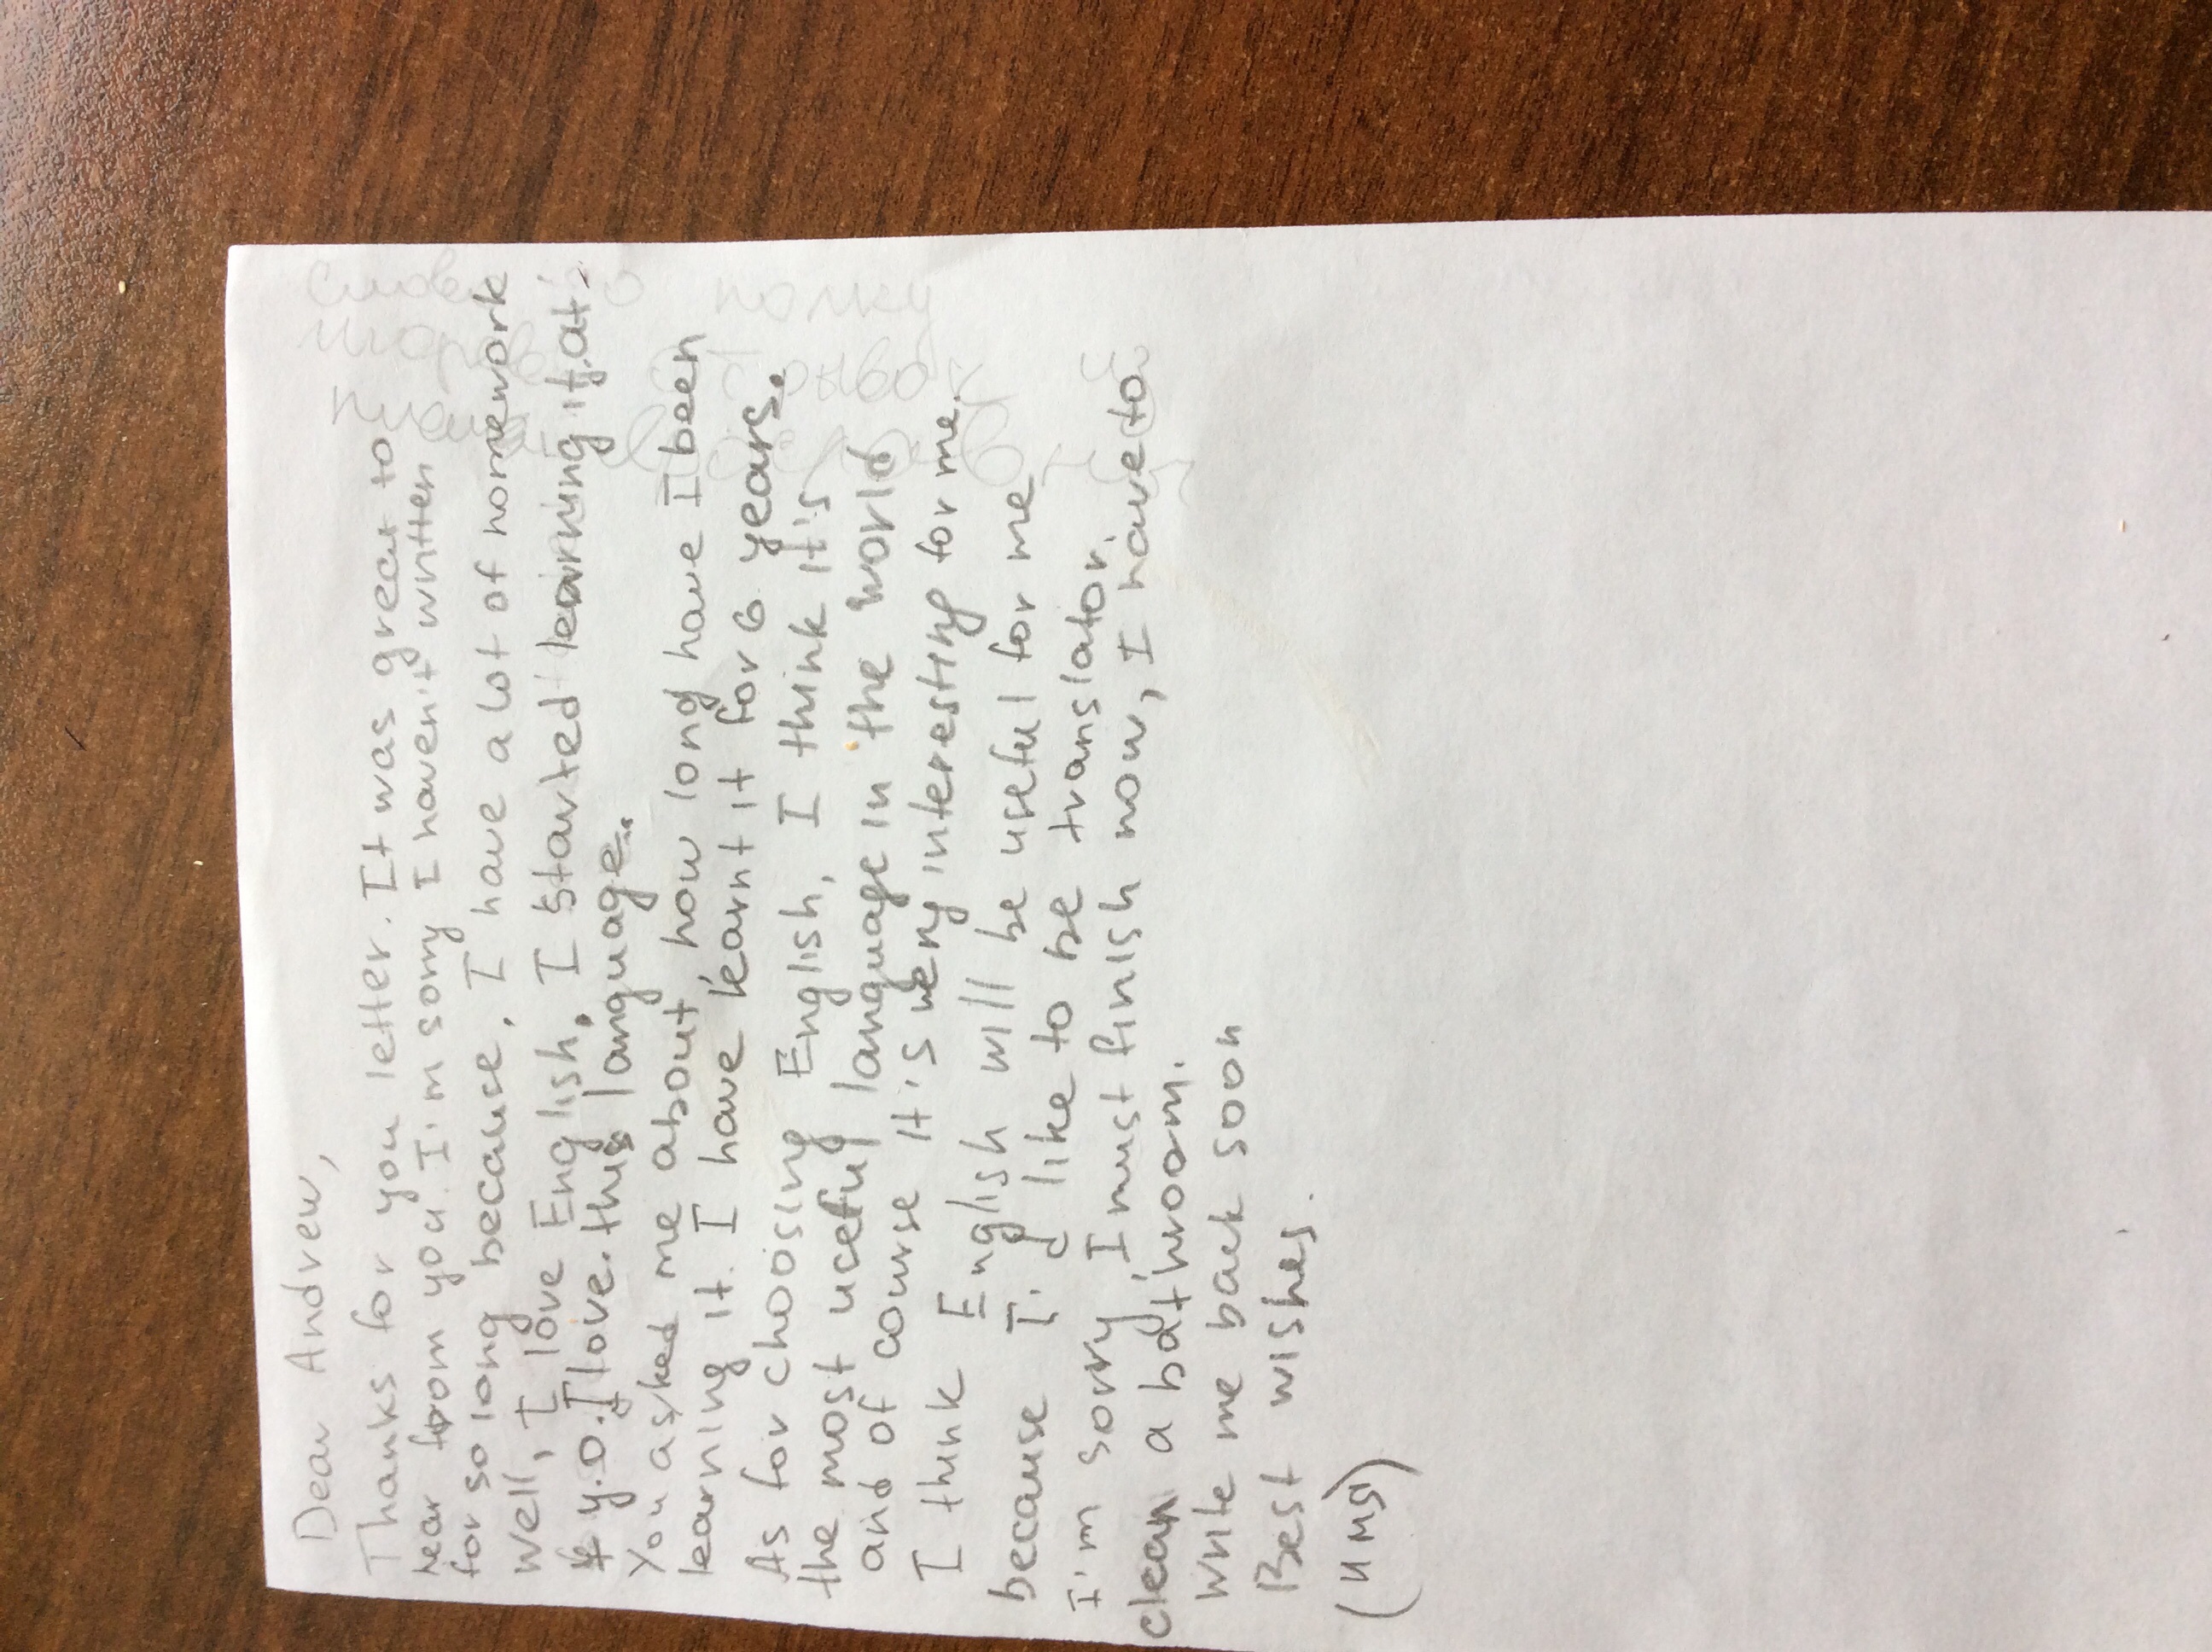 Dear Andrew,
Thanks for you letter. It was great to
hear from you. I'm sorry I haven't written
for so long because, I have a lot of homework
Well, I love English. I started learning it at
y.o. I love this language.
You asked me about how long have I been
learning it. I have learnt it for 6 years.
As for choosing English, I think it's
the most uceful language in the world
and of course it's very interesting for me.
I think English will be useful for me
because I'd like to be translator.
I'm sorry I must finish now, I have to
clean a bathroom.
write me back soon
Best wishes.
(имя)